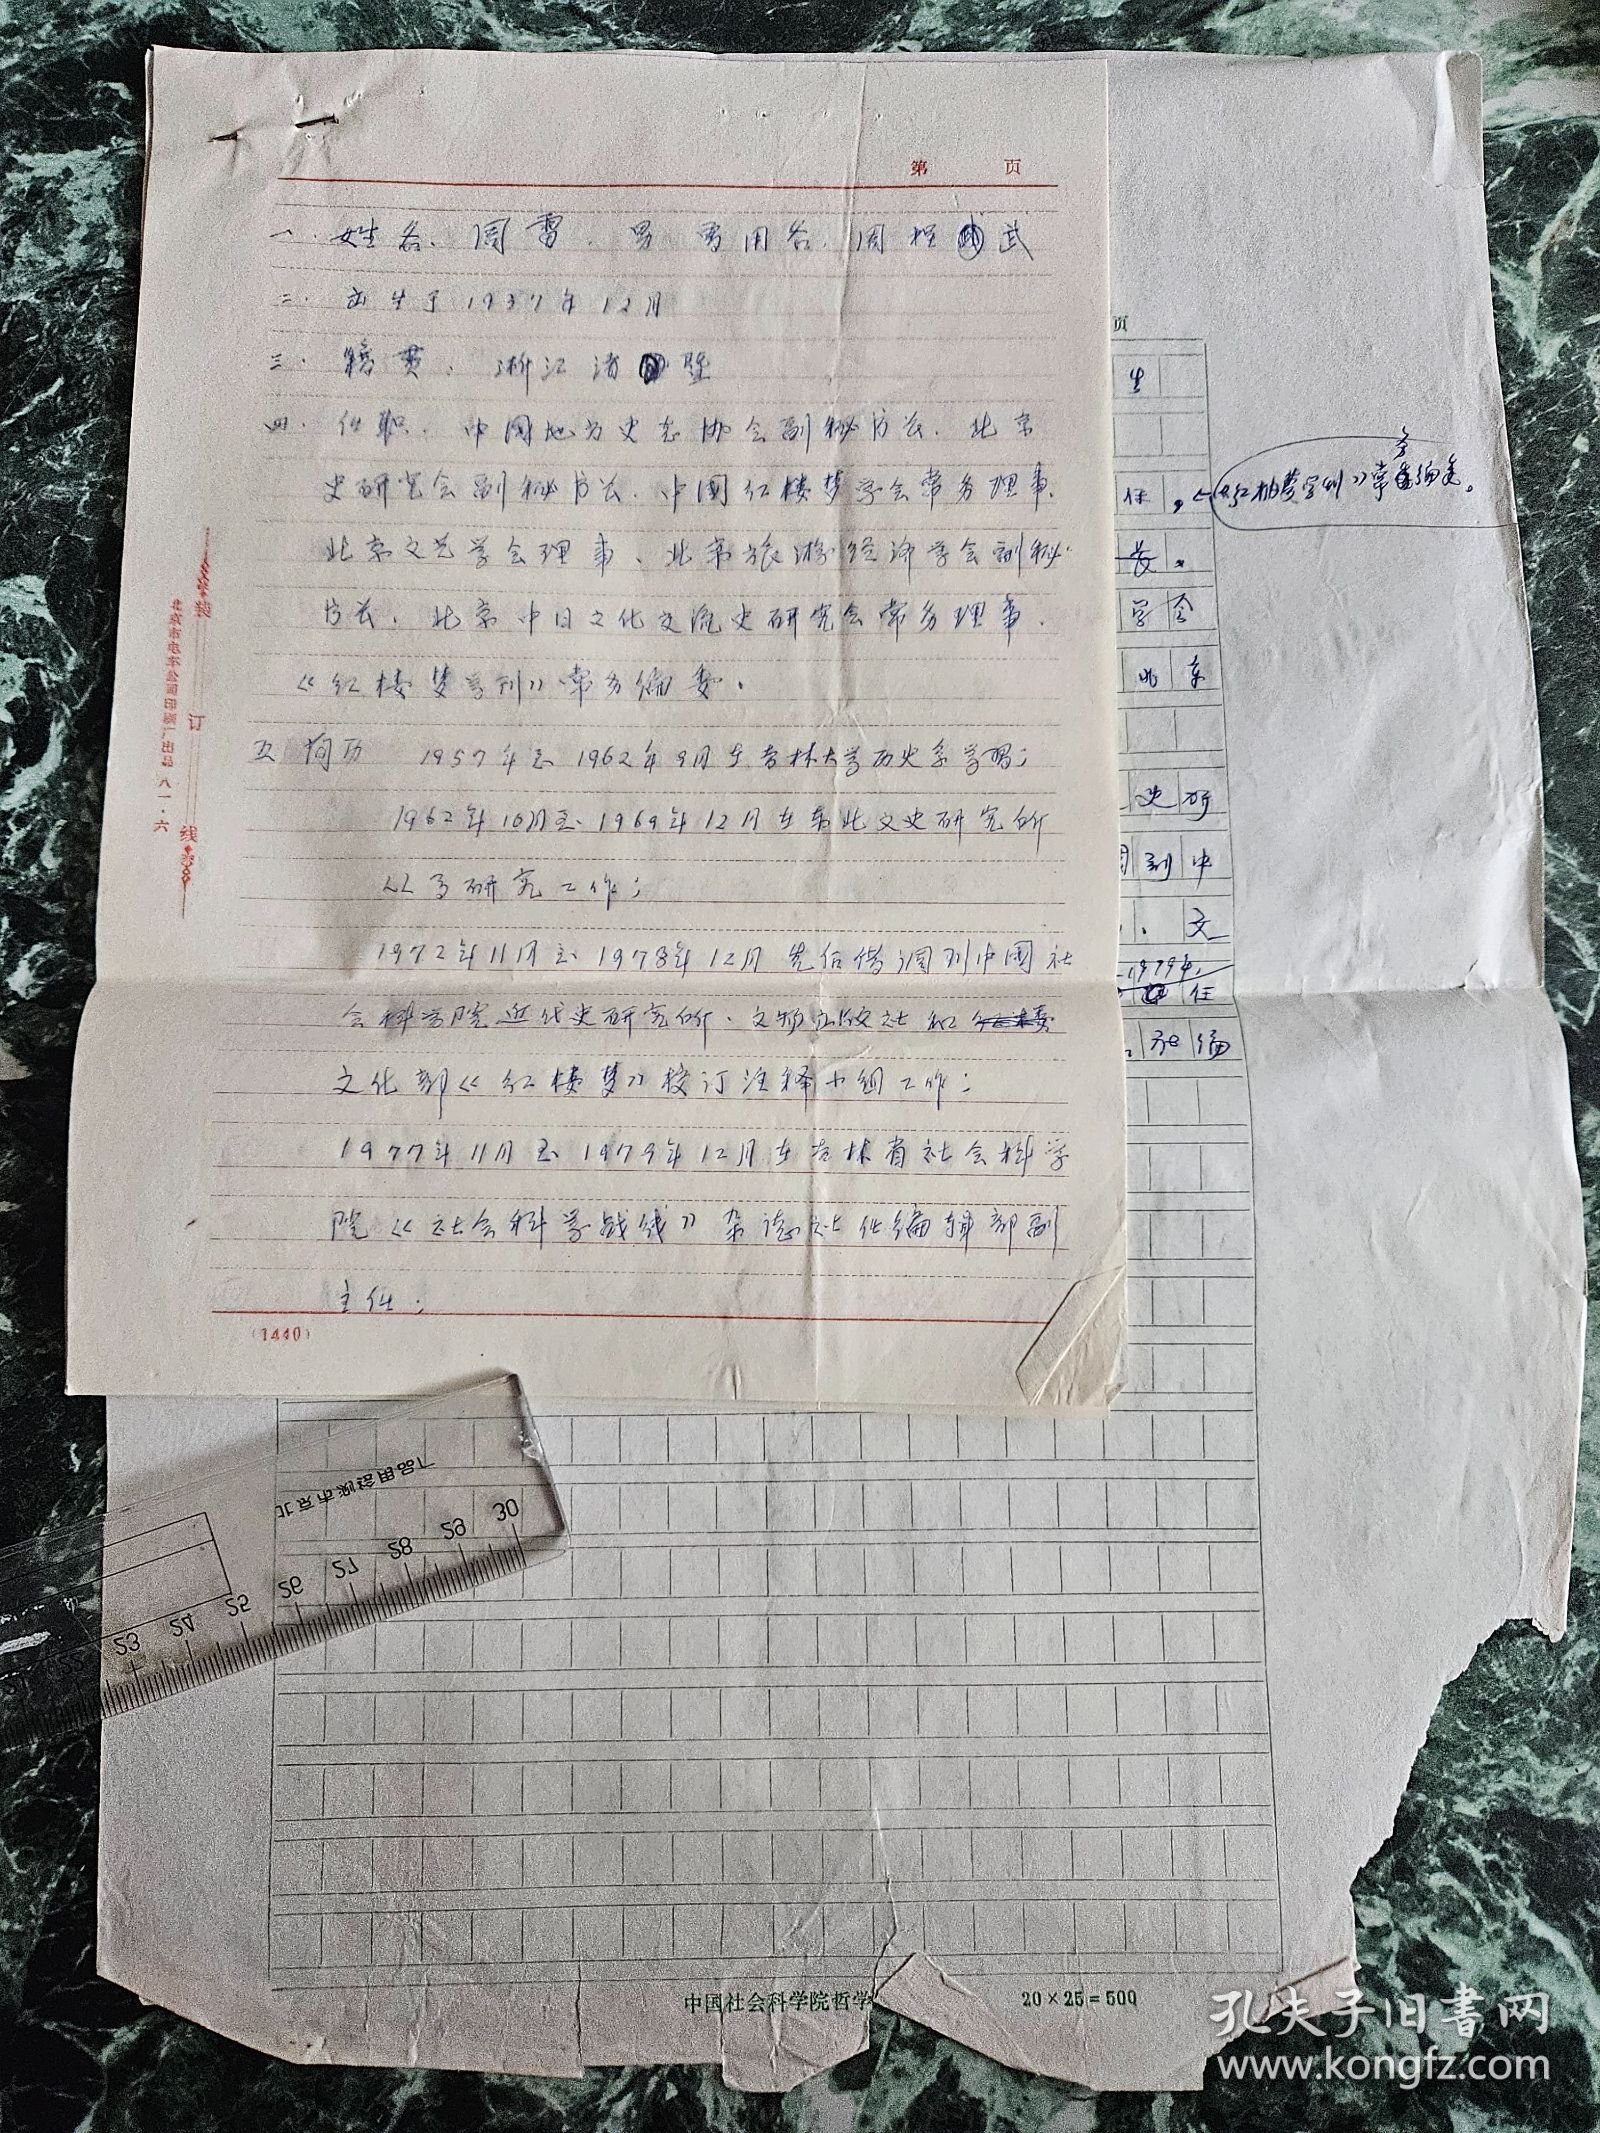 第 页
一. 姓名. 周雷. 男 曾用名. 周程武
二. 出生于1937年12月
三. 籍贯. 浙江诸暨
四. 任职. 中国地方史志协会副秘书长. 北京
史研究会副秘书长. 中国红楼梦学会常务理事.
北京文艺学会理事、北京旅游经济学会副秘
书长. 北京中日文化交流史研究会常务理事.
《红楼梦学刊》常务编委.
五 简历 1957年至1962年9月在吉林大学历史系学习;
1962年10月至1969年12月在东北文史研究所
从事研究工作;
1972年11月至1978年12月先后借调到中国社
会科学院近代史研究所.文物出版社和红楼
文化部《红楼梦》校订注释小组工作;
1977年11月至1979年12月在吉林省社会科学
院《社会科学战线》杂志社任编辑部副
主任;
(1440)
装
订
线
北京市电车公司印刷厂出品 八一·六
页
生
任. 《红楼梦学刊》常务编委。
长.
学会
北京
史研
到中
. 文
1979年
任
和编
北京市映登用品厂
30
29
28
27
26
25
24
23
22
中国社会科学院哲学
20×25=500
孔夫子旧书网
www.kongfz.com